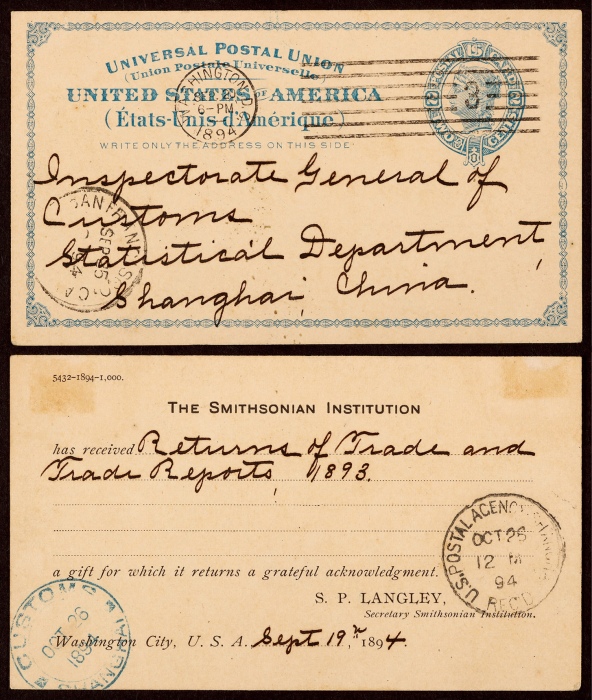 UNIVERSAL POSTAL UNION
(Union Postale Universelle)
UNITED STATES OF AMERICA
(États-Unis d'Amérique)
WRITE ONLY THE ADDRESS ON THIS SIDE
WASHINGTON, D.C.
6-PM
1894
3
POSTAL CARD
TWO CENTS
Inspectorate General of
Customs
Statistical Department
Shanghai, China.
SAN FRANCISCO, CAL
SEP 25
5432-1894-1,000.
THE SMITHSONIAN INSTITUTION
has received Returns of Trade and
Trade Reports, 1893.
a gift for which it returns a grateful acknowledgment.
S. P. LANGLEY,
Secretary Smithsonian Institution.
Washington City, U. S. A. Sept 19, 1894.
U.S. POSTAL AGENCY SHANGHAI
OCT 26
12 M
94
REC'D
CUSTOMS
OCT 26
1894
SHANGHAI